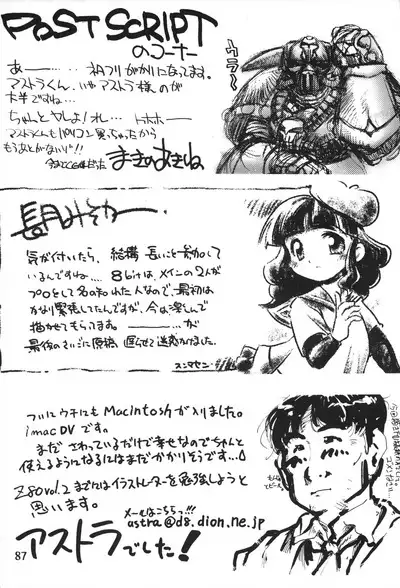 POST SCRIPT
のコーナー
ウラ〜
あー………。ネコフリがかりになってます。
アストラくん、いやアストラ様のが
大半ですね…
ちゃんとヤレよ!オレ…トホホー
アストラくんもパソコン買っちゃったから
もうあとがないゾ!!
まきのあきね
長月みそか
気が付いたら、結構 長いこと参加して
いるんですね…。8bitは、メインの2人が
プロとして名の知れた人なので、最初は
かなり緊張してたんですが、今は楽しんで
描かせてもらってます。――が
最後のさいごに原稿 遅らせて迷惑かけました。
スンマセン
ついにウチにもMacintoshが入りました。
imac DVです。
まだ さわっているだけで幸せなのでちゃんと
使えるようになるにはまだかかりそうです…。
Z80 vol.2 までにはイラストレーターを勉強しようと
思います。
メールはこちら!!!
astra@d8.dion.ne.jp
アストラでした!
87